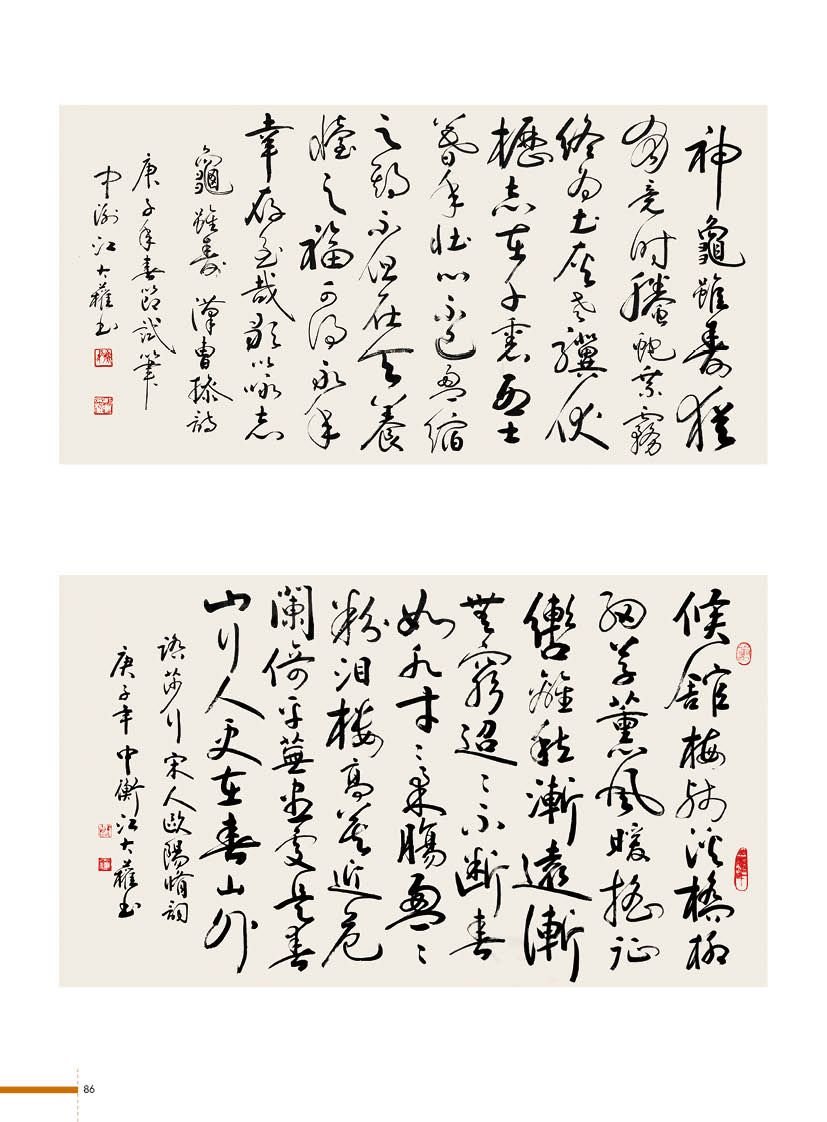 神龜雖壽猶
有竟時騰蛇乘霧
終為土灰老驥伏
櫪志在千里烈士
暮年壯心不已盈縮
之期不但在天養
怡之福可得永年
幸甚至哉歌以詠志
龜雖壽 漢曹操詩
庚子年春節試筆
中 江大 书
候館梅殘溪橋柳
細草薰風暖搖征
轡離愁漸遠漸
無窮迢〻不斷春
如水寸〻柔腸盈〻
粉泪樓高莫近危
闌倚平蕪盡處是春
山行人更在春山外
踏莎行宋人歐陽脩詞
庚子年中衡江大 书
86